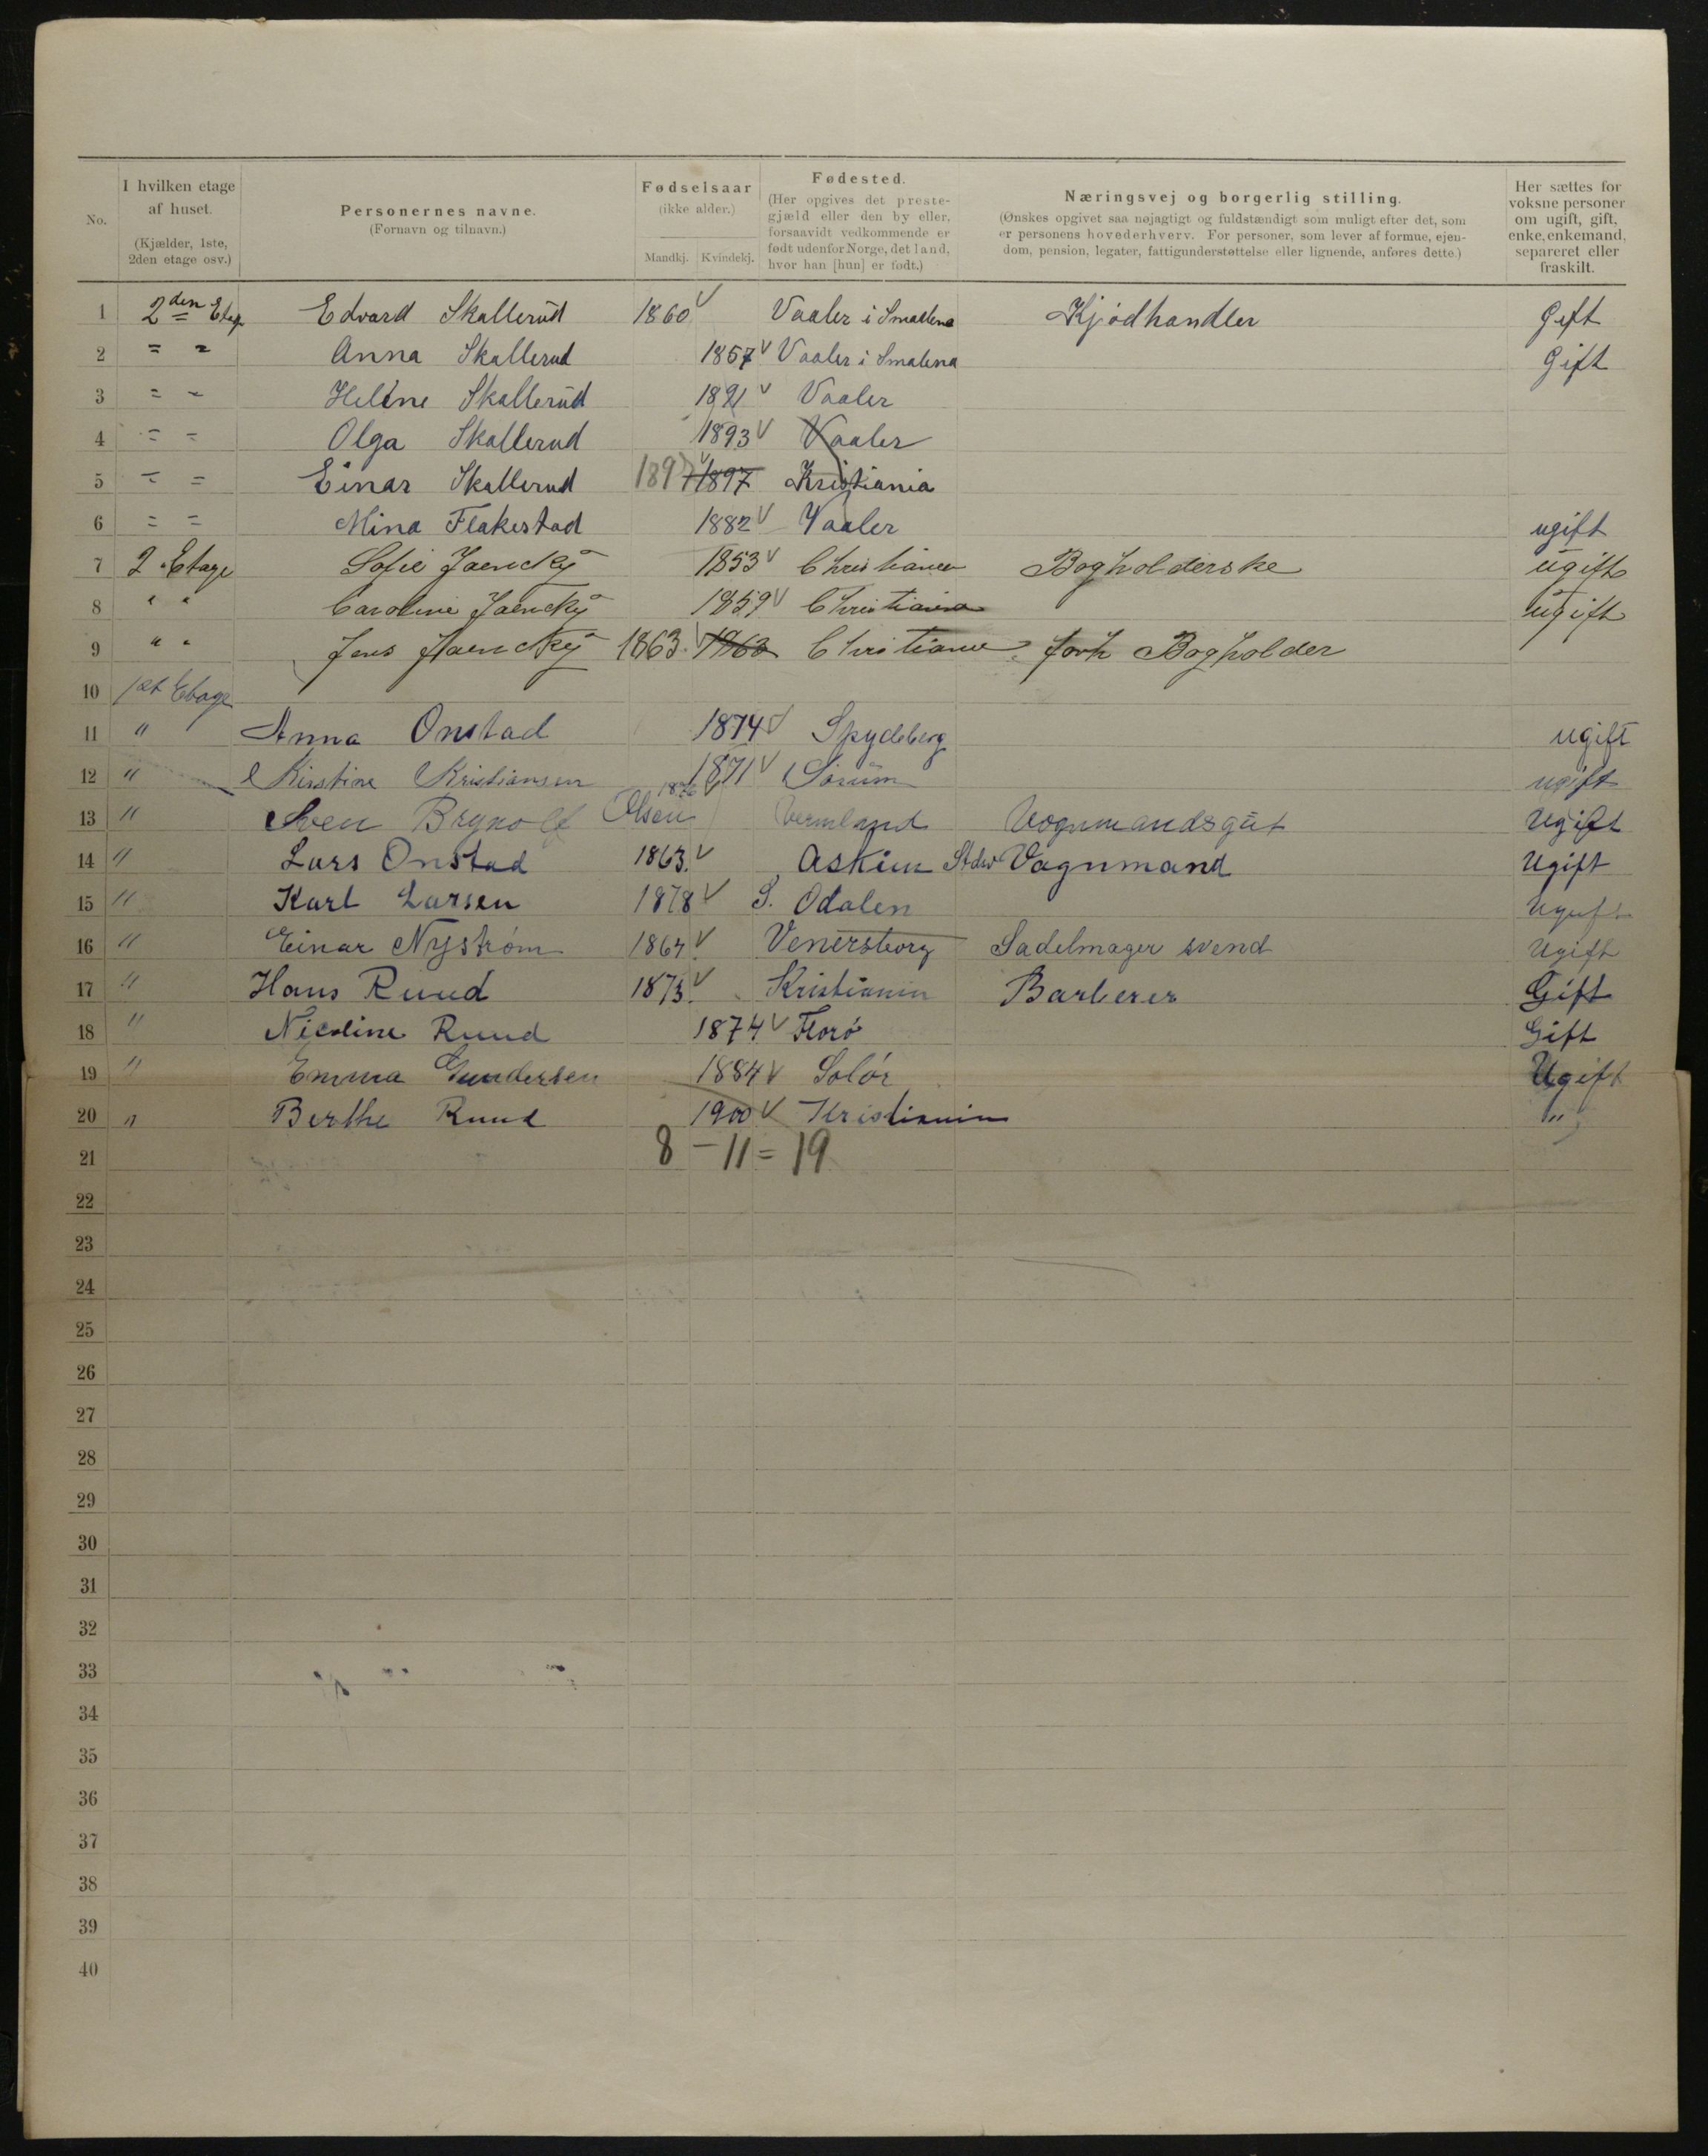 No. I hvilken etage af huset. (Kjælder, 1ste, 2den etage osv.) Personernes navne. (Fornavn og tilnavn.) Fødselsaar (ikke alder.) Mandkj. Kvindekj. Fødested. (Her opgives det prestegjæld eller den by eller, forsaavidt vedkommende er født udenfor Norge, det land, hvor han [hun] er født.) Næringsvej og borgerlig stilling. (Ønskes opgivet saa nøjagtigt og fuldstændigt som muligt efter det, som er personens hovederhverv. For personer, som lever af formue, ejendom, pension, legater, fattigunderstøttelse eller lignende, anføres dette.) Her sættes for voksne personer om ugift, gift, enke, enkemand, separeret eller fraskilt.
1 2den Etage Edvard Skallerud 1860 Vaaler i Smaalene Kjødhandler Gift
2 = = Anna Skallerud 1857 Vaaler i Smalene Gift
3 = = Heline Skallerud 1891 Vaaler
4 = = Olga Skallerud 1893 Vaaler
5 = = Einar Skallerud 1897 1897 Kristiania
6 = = Mina Flakestad 1882 Vaaler ugift
7 2 Etage Sofie Jaencky 1853 Christiania Bogholderske ugift
8 " " Caroline Jaencky 1859 Christiania ugift
9 " " Jens Jaencky 1863 1863 Christiania forh Bogholder
10 1st Etage
11 " Anna Onstad 1874 Spydeberg ugift
12 " Kirstine Kristiansen 1871 Sørum ugift
13 " Sven Brynolf Olsen 1876 Vermland Vognmandsgut Ugift
14 " Lars Onstad 1863. Askim Vagnmand Ugift
15 " Karl Larsen 1878 S. Odalen Ugift
16 " Einar Nystrøm 1867 Venersborg Sadelmager svend Ugift
17 " Hans Ruud 1873. Kristiania Barberer Gift
18 " Nicoline Ruud 1874 Florø Gift
19 " Emma Gundersen 1884 Solør Ugift
20 " Berthe Ruud 1900 Kristiania "
21 8 - 11 = 19
22
23
24
25
26
27
28
29
30
31
32
33
34
35
36
37
38
39
40